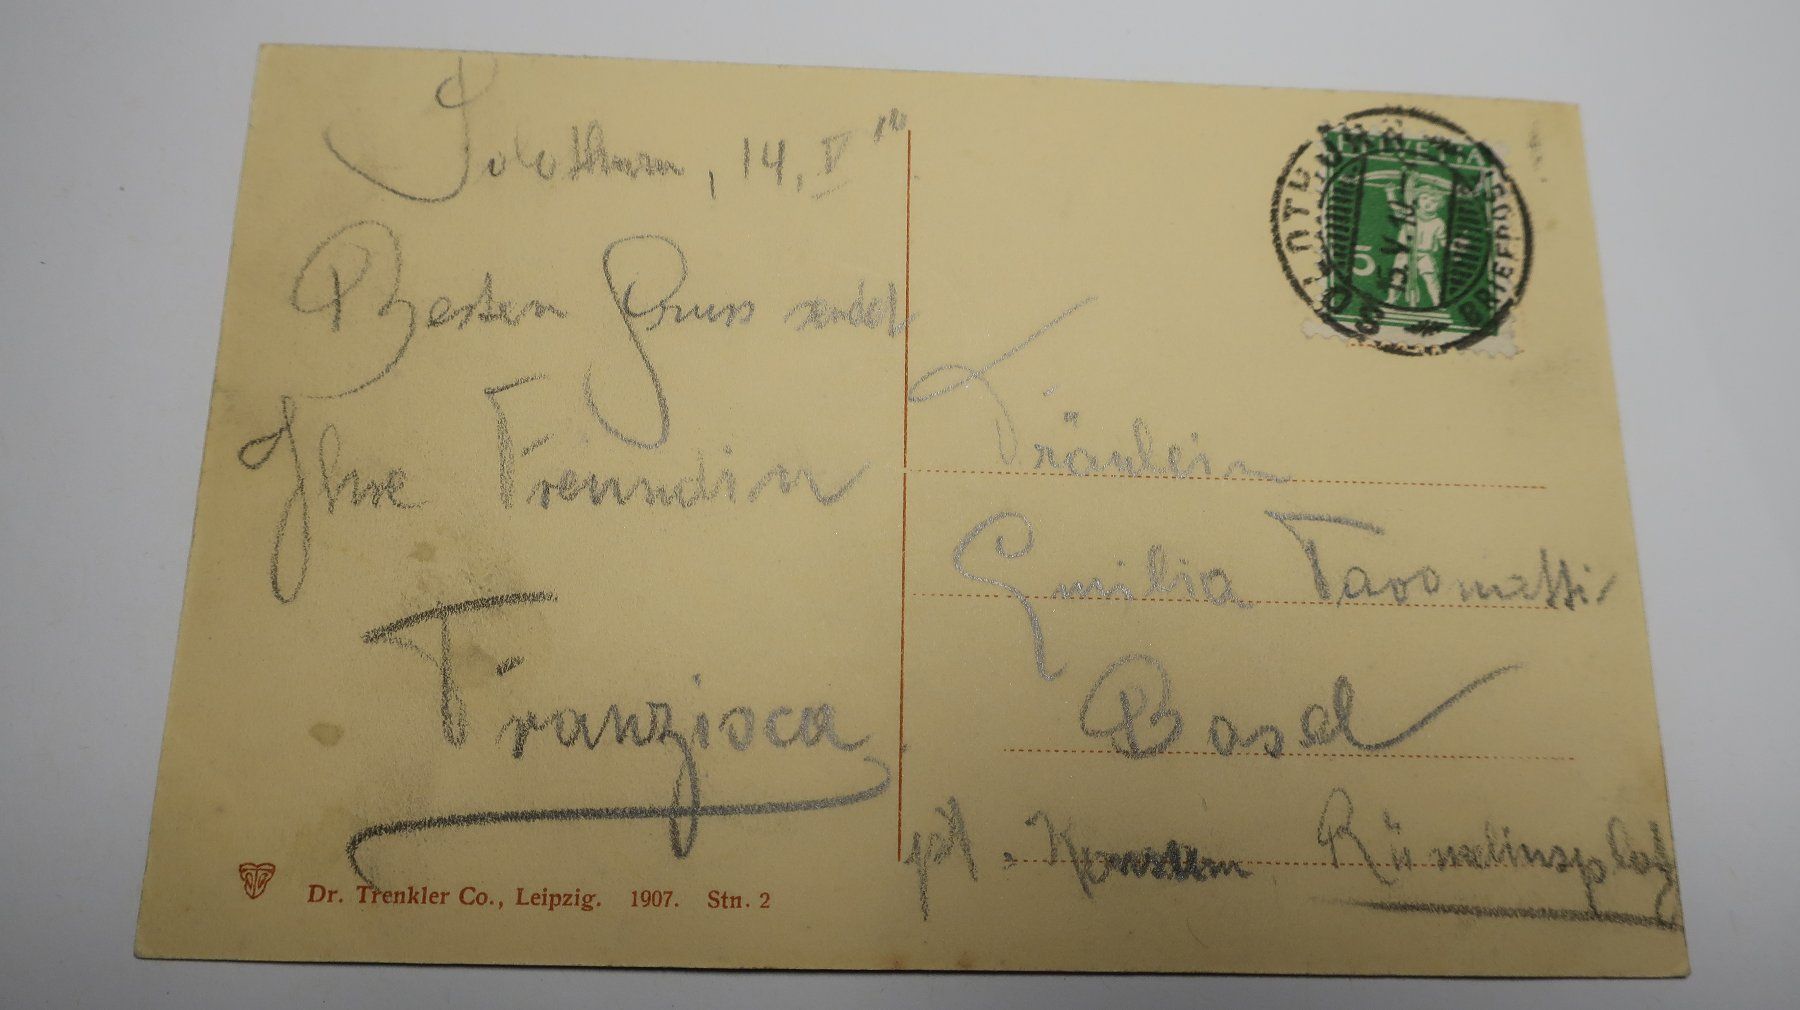 Solothurn, 14. V 10
Besten Gruss sendet
Ihre Freundin
Franzisca
Dr. Trenkler Co., Leipzig. 1907. Stn. 2
HELVETIA
5
SOLOTHURN
15.V.10
BRIEFPOST
Fräulein
Emilia
Basel
Rümelinsplatz